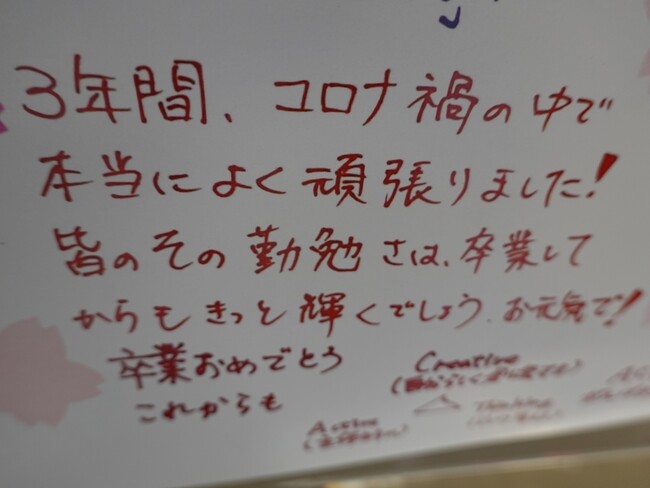 3年間、コロナ禍の中で
本当によく頑張りました!
皆のその勤勉さは、卒業して
からもきっと輝くでしょう。お元気で!
卒業おめでとう
これからも
Creative
Active
Thinking